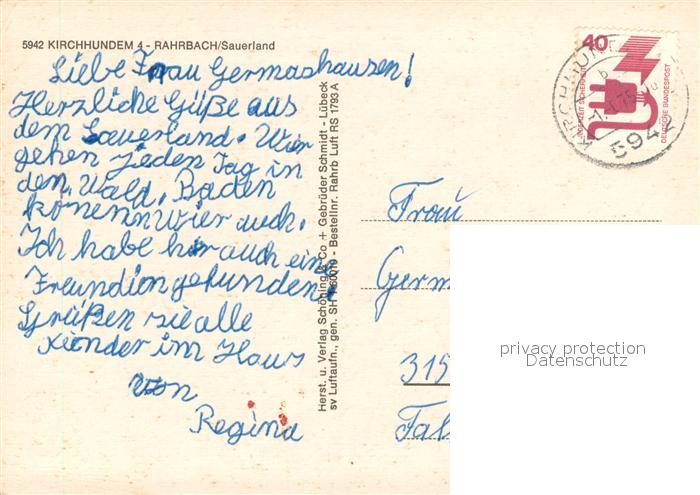 5942 KIRCHHUNDEM 4 - RAHRBACH/Sauerland
Liebe Frau Germashausen!
Herzliche Güße aus
dem Sauerland. Wier
gehen jeden Tag in
den Wald. Baden
könenn Wier auch.
Ich habe hir auch eine
Freundion gefunden.
Grüßen sie alle
Kiender im Haus
von
Regina
Herst. u. Verlag Schöning & Co + Gebrüder Schmidt - Lübeck
sv Luftaufn., gen. SH - Bestellnr. Rahrb Luft RS 11793 A
40
JEDERZEIT SICHERHEIT
DEUTSCHE BUNDESPOST
Frau
Germ
315
Fal
privacy protection
Datenschutz